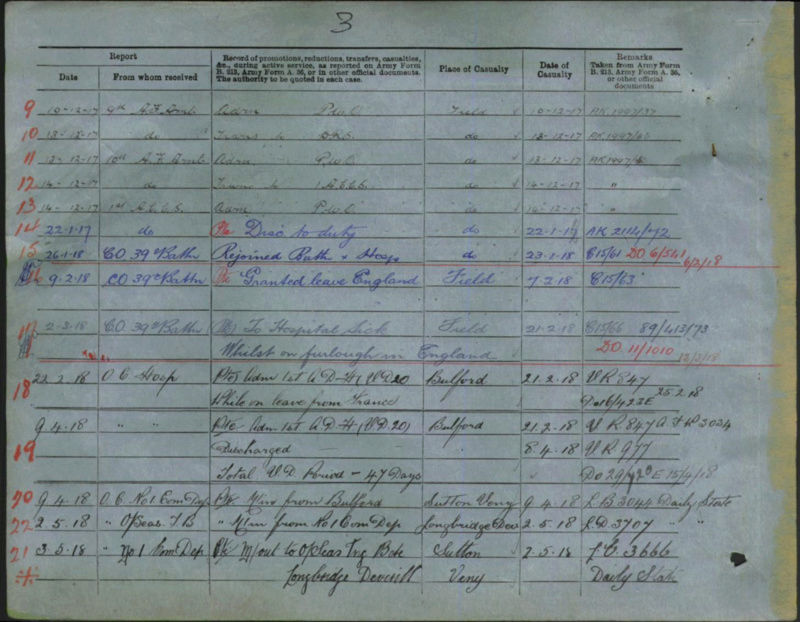 3
Report
Record of promotions, reductions, transfers, casualties, &c., during active service, as reported on Army Form B. 213, Army Form A. 36, or in other official documents. The authority to be quoted in each case.
Place of Casualty
Date of Casualty
Remarks Taken from Army Form B. 213, Army Form A. 36, or other official documents
Date From whom received
9 10-12-17 9th A.F. Amb. Adm P.U.O. Field 10-12-17 AK 1997/37
10 13-12-17 do Trans to do 13-12-17
11 13-12-17 10th A.F. Amb. Adm. P.U.O. do 13-12-17
12 14-12-17 do Trans to 1 A.C.C.S. do 14-12-17 "
13 14-12-17 1st A.C.C.S. Adm P.U.O. do 14-12-17 "
14 22-1-17 do Disc to duty do 22-1-17 AK 2114/72
15 26-1-18 CO 39th Battn Rejoined Battn x Hosp do 23-1-18 C15/61 DO 6/541
6/2/18
9.2.18 CO 39th Battn Pte Granted leave England Field 7.2.18 C15/63
17 2-3-18 CO 39th Battn To Hospital Sick Field 21-2-18 C15/66 89/413/73
Whilst on furlough in England DO 11/1010 12/3/18
18 22.2.18 O.C. Hosp Pte Adm 1st A.D.H (VD20 Bulford 21.2.18 VR 847
While on leave from France 25.2.18
9.4.18 " " Pte Adm. 1st A.D.H (V.D.20) Bulford 21.2.18 VR 847 A.F.W 3034
19 Discharged — — 8.4.18 VR 977
Total V.D. Period - 47 Days 15/4/18
20 9.4.18 O.C. No 1 Com Dep Pte M/in from Bulford Sutton Veny 9.4.18 L.B 3044 Daily State
22 2.5.18 " O/Seas T.B " M/in from No 1 Com Dep Longbridge Dev 2.5.18 L.D 3707 " "
21 3.5.18 " No 1 Com Dep Pte M/out to O/Seas Trg Bde Sutton 2.5.18 3666
Longbridge Deverill Veny Daily State